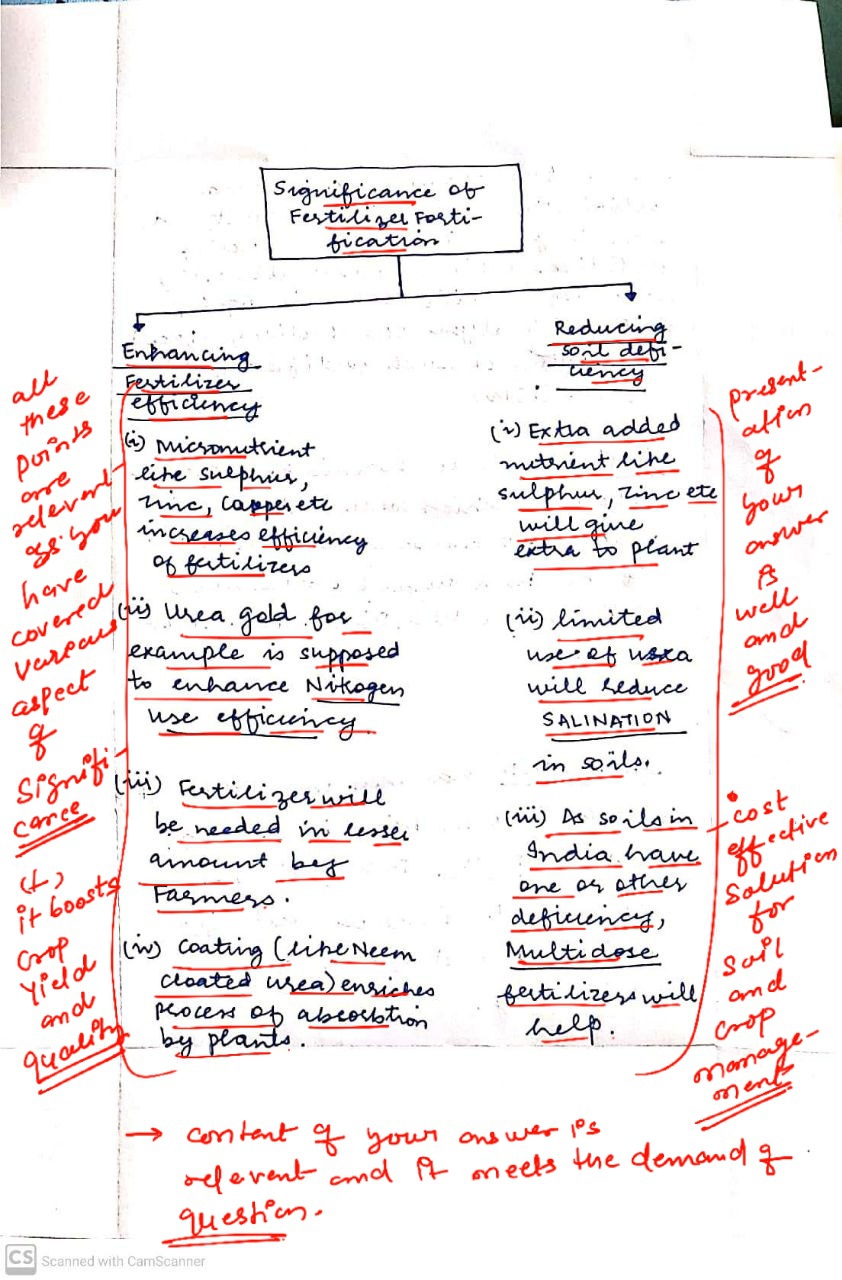 Significance of
Fertilizer Forti-
fication
Enhancing
Fertilizer
efficiency
(i) Micronutrient
like sulphur,
zinc, Copper etc
increases efficiency
of fertilizers
(ii) Urea gold for
example is supposed
to enhance Nitrogen
use efficiency.
(iii) Fertilizer will
be needed in lesser
amount by
Farmers.
(iv) Coating (like Neem
cloated urea) enriches
process of abscorbtion
by plants.
Reducing
soil defi-
ciency
(i) Extra added
nutrient like
sulphur, zinc etc
will give
extra to plant
(ii) limited
use of urea
will reduce
SALINATION
in soils.
(iii) As soils in
India have
one or other
deficiency,
Multidose
fertilizers will
help.
all
these
points
are
relevant
as you
have
covered
various
aspect
of
signifi-
cance
(+)
it boosts
crop
yield
and
quality
present-
ation
of
your
answer
is
well
and
good
• cost
effective
solution
for
soil
and
crop
manage-
ment
→ content of your answer is
relevent and it meets the demand of
question.
CS Scanned with CamScanner